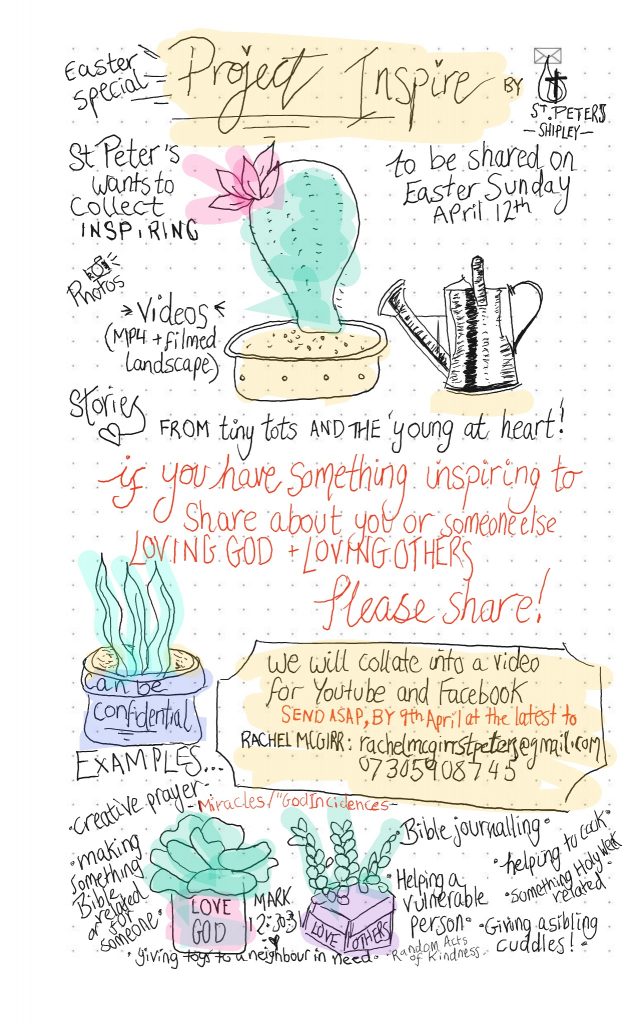 Easter
special
Project Inspire
BY
ST. PETER'S
-SHIPLEY-
St Peter's
wants to
collect
INSPIRING
to be shared on
Easter Sunday
April 12th
Photos
Videos
(MP4 + filmed
landscape)
Stories
FROM tiny tots AND THE 'young at heart!
if you have something inspiring to
share about you or someone else
LOVING GOD + LOVING OTHERS
Please share!
can be
confidential
we will collate into a video
for Youtube and Facebook
SEND ASAP, BY 9th April at the latest to
RACHEL MCGIRR: rachelmcgirrstpeters@gmail.com
07305908745
EXAMPLES...
-Miracles/"GodIncidences-
•creative prayer-
•making
something
Bible
related
or for
someone•
LOVE
GOD
MARK
12:30-31
LOVE OTHERS
•Bible journalling•
•Helping a
vulnerable
person•
•helping to cook•
•something Holy Week
related•
•Giving a sibling
cuddles!•
•giving toys to a neighbour in need•
•Random Acts
of Kindness..